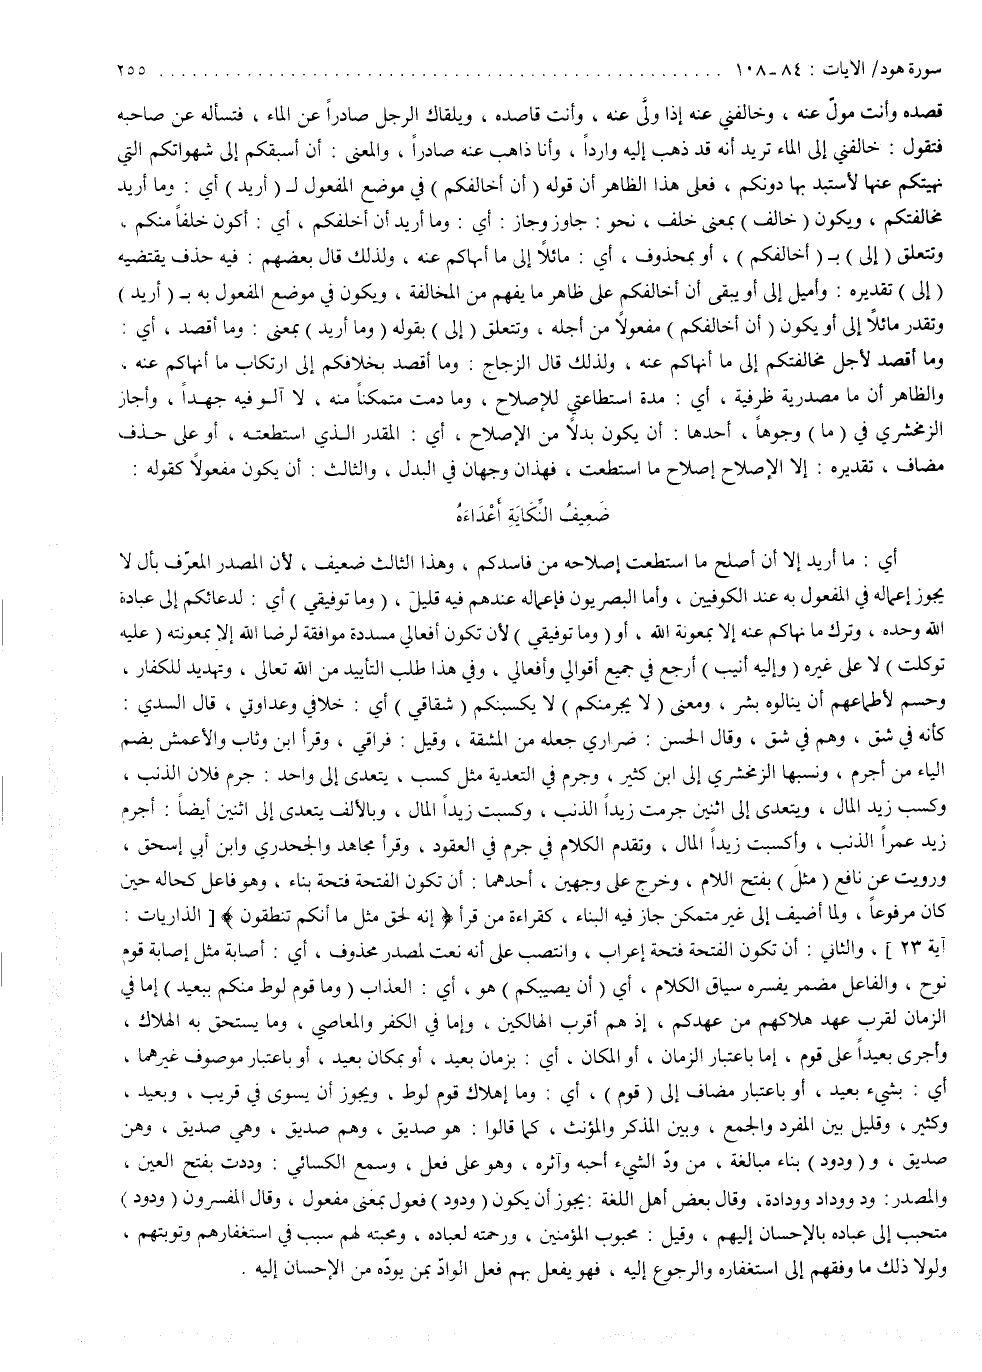 سورة هود/ الايات : ٨٤ ـ ١٠٨ ........................................................ ٢٥٥
قصده وأنت مولّ عنه ، وخالفني عنه إذا ولَّى عنه ، وأنت قاصده ، ويلقاك الرجل صادراً عن الماء ، فتسأله عن صاحبه
فتقول : خالفني إلى الماء تريد أنه قد ذهب إليه وارداً ، وأنا ذاهب عنه صادراً ، والمعنى : أن أسبقكم إلى شهواتكم التي
نهيتكم عنها لأستبد بها دونكم ، فعلى هذا الظاهر أن قوله ( أن أخالفكم ) في موضع المفعول لـ ( أريد ) أي : وما أريد
مخالفتكم ، ويكون ( خالف ) بمعنى خلف ، نحو : جاوز وجاز : أي : وما أريد أن أخلفكم ، أي : أكون خلفاً منكم ،
وتتعلق ( إلى ) بـ ( أخالفكم ) ، أو بمحذوف ، أي : مائلًا إلى ما أنهاكم عنه ، ولذلك قال بعضهم : فيه حذف يقتضيه
( إلى ) تقديره : وأميل إلى أو يبقى أن أخالفكم على ظاهر ما يفهم من المخالفة ، ويكون في موضع المفعول به بـ ( أريد )
وتقدر مائلًا إلى أو يكون ( أن أخالفكم ) مفعولاً من أجله ، وتتعلق ( إلى ) بقوله ( وما أريد ) بمعنى : وما أقصد ، أي :
وما أقصد لأجل مخالفتكم إلى ما أنهاكم عنه ، ولذلك قال الزجاج : وما أقصد بخلافكم إلى ارتكاب ما أنهاكم عنه ،
والظاهر أن ما مصدرية ظرفية ، أي : مدة استطاعتي للإصلاح ، وما دمت متمكناً منه ، لا آلـو فيه جهـداً ، وأجاز
الزمخشري في ( ما ) وجوهاً ، أحدها : أن يكون بدلًا من الإصلاح ، أي : المقدر الـذي استطعتـه ، أو على حـذف
مضاف ، تقديره : إلا الإصلاح إصلاح ما استطعت ، فهذان وجهان في البدل ، والثالث : أن يكون مفعولًا كقوله :
ضَعِيفُ النِّكَايَةِ أَعْدَاءَهُ
أي : ما أريد إلا أن أصلح ما استطعت إصلاحه من فاسدكم ، وهذا الثالث ضعيف ، لأن المصدر المعرّف بأل لا
يجوز إعماله في المفعول به عند الكوفيين ، وأما البصريون فإعماله عندهم فيه قليلَ ، ( وما توفيقي ) أي : لدعائكم إلى عبادة
الله وحده ، وترك ما نهاكم عنه إلا بمعونة الله ، أو ( وما توفيقي ) لأن تكون أفعالي مسددة موافقة لرضا الله إلا بمعونته ( عليه
توكلت ) لا على غيره ( وإليه أنيب ) أرجع في جميع أقوالي وأفعالي ، وفي هذا طلب التأييد من الله تعالى ، وتهديد للكفار ،
وحسم لأطماعهم أن ينالوه بشر ، ومعنى ( لا يجرمنكم ) لا يكسبنكم ( شقاقي ) أي : خلافي وعداوتي ، قال السدي :
كأنه في شق ، وهم في شق ، وقال الحسن : ضراري جعله من المشقة ، وقيل : فراقي ، وقرأ ابن وثاب والأعمش بضم
الياء من أجرم ، ونسبها الزمخشري إلى ابن كثير ، وجرم في التعدية مثل كسب ، يتعدى إلى واحد : جرم فلان الذنب ،
وكسب زيد المال ، ويتعدى إلى اثنين جرمت زيداً الذنب ، وكسبت زيداً المال ، وبالألف يتعدى إلى اثنين أيضاً : أجرم
زيد عمراً الذنب ، وأكسبت زيداً المال ، وتقدم الكلام في جرم في العقود ، وقرأ مجاهد والجحدري وابن أبي إسحق ،
ورويت عن نافع ( مثلَ ) بفتح اللام ، وخرج على وجهين ، أحدهما : أن تكون الفتحة فتحة بناء ، وهو فاعل كحاله حين
كان مرفوعاً ، ولما أضيف إلى غير متمكن جاز فيه البناء ، كقراءة من قرأ ﴿ إنه لحق مثل ما أنكم تنطقون ﴾ [ الذاريات :
آية ٢٣ ] ، والثاني : أن تكون الفتحة فتحة إعراب ، وانتصب على أنه نعت لمصدر محذوف ، أي : أصابة مثل إصابة قوم
نوح ، والفاعل مضمر يفسره سياق الكلام ، أي ( أن يصيبكم ) هو ، أي : العذاب ( وما قوم لوط منكم ببعيد ) إما في
الزمان لقرب عهد هلاكهم من عهدكم ، إذ هم أقرب الهالكين ، وإما في الكفر والمعاصي ، وما يستحق به الهلاك ،
وأجرى بعيداً على قوم ، إما باعتبار الزمان ، أو المكان ، أي : بزمان بعيد ، أو بمكان بعيد ، أو باعتبار موصوف غيرهما ،
أي : بشيء بعيد ، أو باعتبار مضاف إلى ( قوم ) ، أي : وما إهلاك قوم لوط ، ويجوز أن يسوى في قريب ، وبعيد ،
وكثير ، وقليل بين المفرد والجمع ، وبين المذكر والمؤنث ، كما قالوا : هو صديق ، وهم صديق ، وهي صديق ، وهن
صديق ، و ( ودود ) بناء مبالغة ، من ودّ الشيء أحبه وآثره ، وهو على فعل ، وسمع الكسائي : وددت بفتح العين ،
والمصدر: ود ووداد وودادة، وقال بعض أهل اللغة :يجوز أن يكون ( ودود ) فعول بمعنى مفعول ، وقال المفسرون ( ودود )
متحبب إلى عباده بالإحسان إليهم ، وقيل : محبوب المؤمنين ، ورحمته لعباده ، ومحبته لهم سبب في استغفارهم وتوبتهم ،
ولولا ذلك ما وفقهم إلى استغفاره والرجوع إليه ، فهو يفعل بهم فعل الوادّ بمن يودّه من الإحسان إليه .